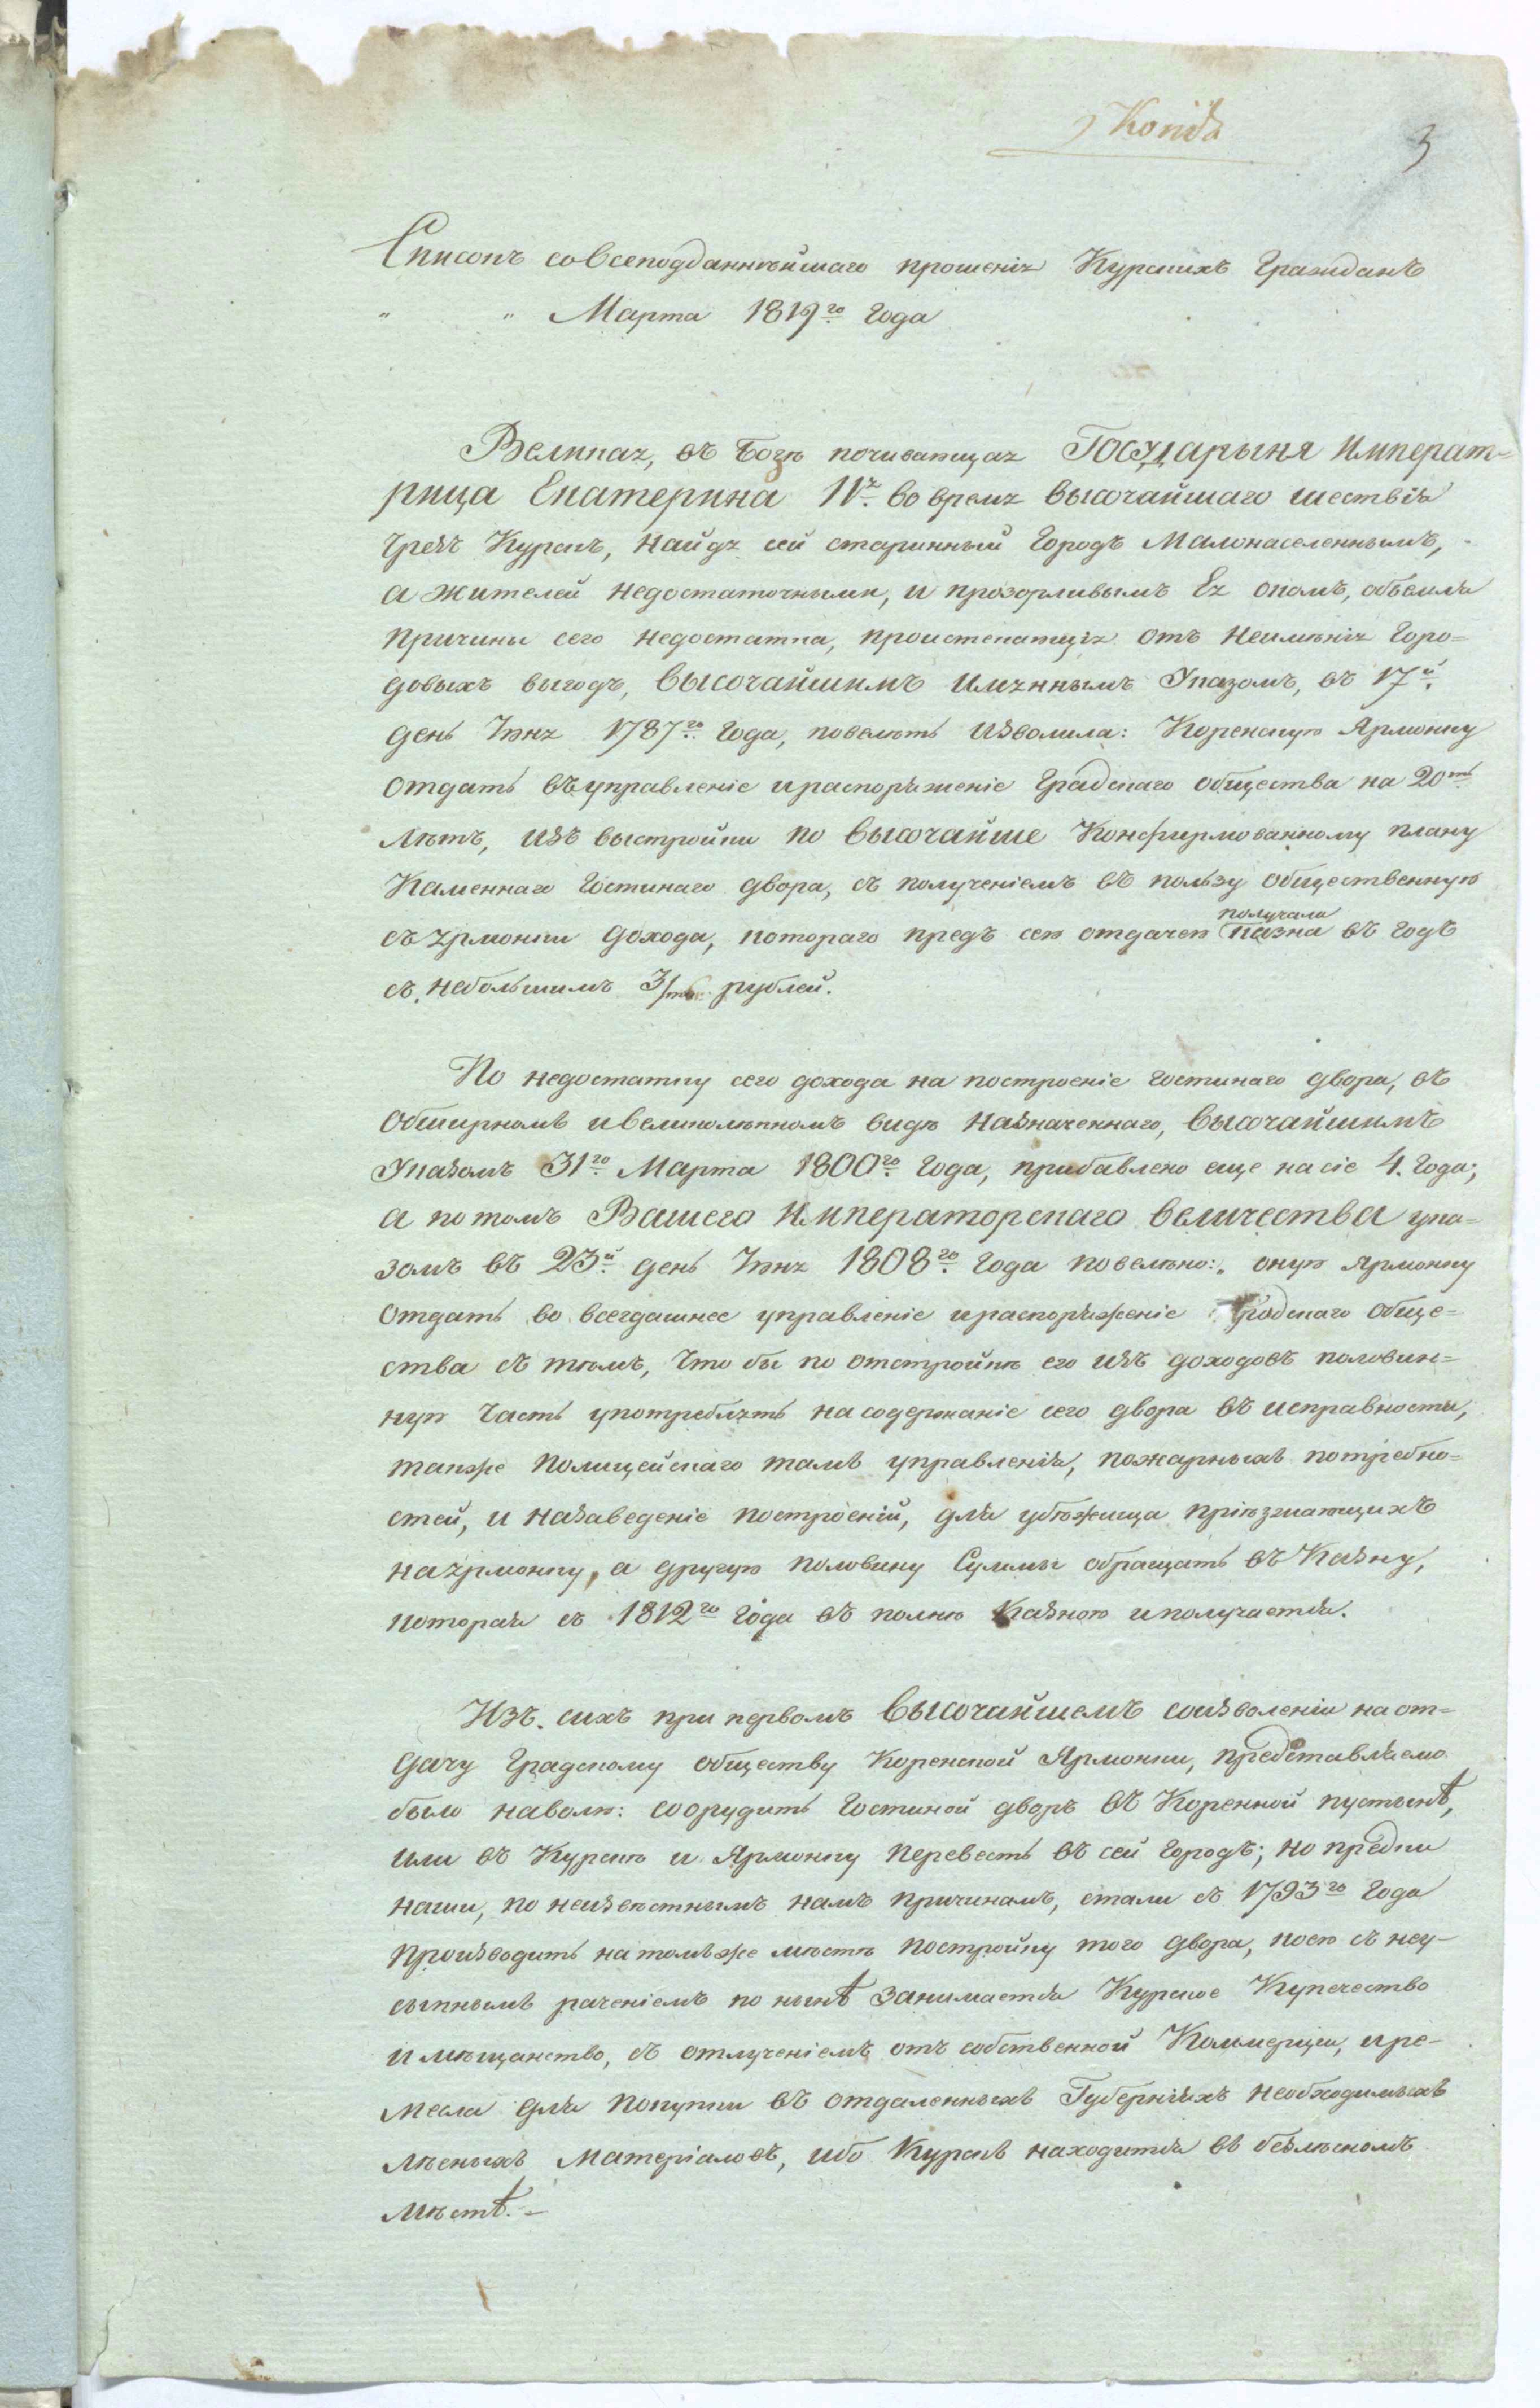 Копія
3
Списокъ со всеподданнѣйшаго прошенія Курскихъ Гражданъ
" " Марта 1819го Года
Великая, въ Богѣ почивающая Государыня Императ=
рица Екатерина IIя. во время высочайшаго шествія
чрезъ Курскъ, найдя сей старинный Городъ Малонаселеннымъ,
а жителей недостаточными, и прозорливымъ Ея окомъ, объемля
причины сего недостатка, проистекающія отъ неимѣнія Горо=
довыхъ выгодъ, Высочайшимъ имяннымъ Указомъ, въ 17й.
день Іюня 1787го. Года, повелѣть изволила: Коренскую Ярмонку
отдать въ управленіе и распоряженіе Градскаго общества на 20ть
лѣтъ, изъ выстройки по Высочайше Конфирмованному плану
Каменнаго Гостинаго двора, съ полученіемъ въ пользу общественную
съ ярмонки дохода, котораго предъ сею отдачею получала казна въ годъ
съ небольшимъ 3/т. рублей.
По недостатку сего дохода на построеніе гостинаго двора, въ
обширномъ и великолѣпномъ видѣ назначеннаго, Высочайшимъ
Указомъ 31го. Марта 1800го. Года, прибавлено еще на сіе 4. Года;
а потомъ Вашего Императорскаго Величества ука=
зомъ въ 23й. день Іюня 1808го. Года повелѣно: „ оную Ярмонку
отдать во всегдашнее управленіе и распоряженіе Градскаго обще=
ства съ тѣмъ, что бы по отстройкѣ его изъ доходовъ половин=
ную часть употреблять на содержаніе сего двора въ исправности,
также полицейскаго тамъ управленія, пожарныхъ потребно=
стей, и на заведеніе построеній, для убѣжища пріѣзжающихъ
на ярмонку, а другую половину Суммы обращать въ Казну,
которая съ 1812го Года въ полнѣ Казною и получается.
Изъ сихъ при первомъ Высочайшемъ соизволеніи на от=
дачу Градскому обществу Коренской Ярмонки, представляемо
было на волю: соорудить Гостиной дворъ въ Коренной пустынѣ,
или въ Курскѣ и Ярмонку перевесть въ сей Городъ; но предки
наши, по неизвѣстнымъ намъ причинамъ, стали съ 1793го Года
производить на томъ же мѣстѣ постройку того двора, коею съ неу-
сыпнымъ раченіемъ по нынѣ занимается Курское Купечество
и мѣщанство, съ отлученіемъ отъ собственной Коммерціи, и ре-
месла для покупки въ отдаленныхъ Губерніяхъ необходимыхъ
лѣсныхъ матеріаловъ, ибо Курскъ находится въ безлѣсномъ
мѣстѣ. -